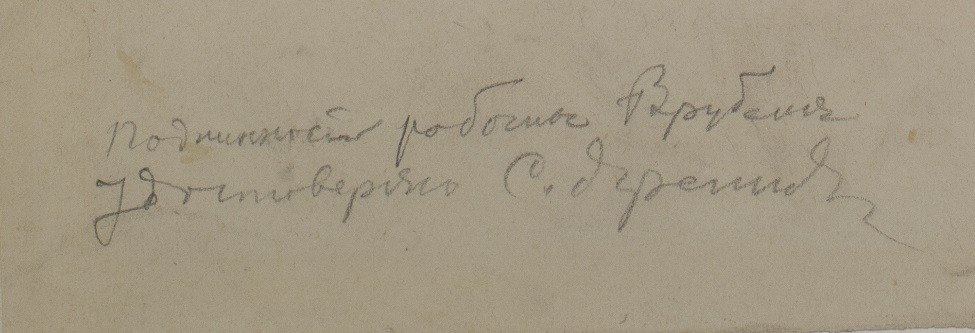 Подлинность работы Врубеля
удостоверяю С.